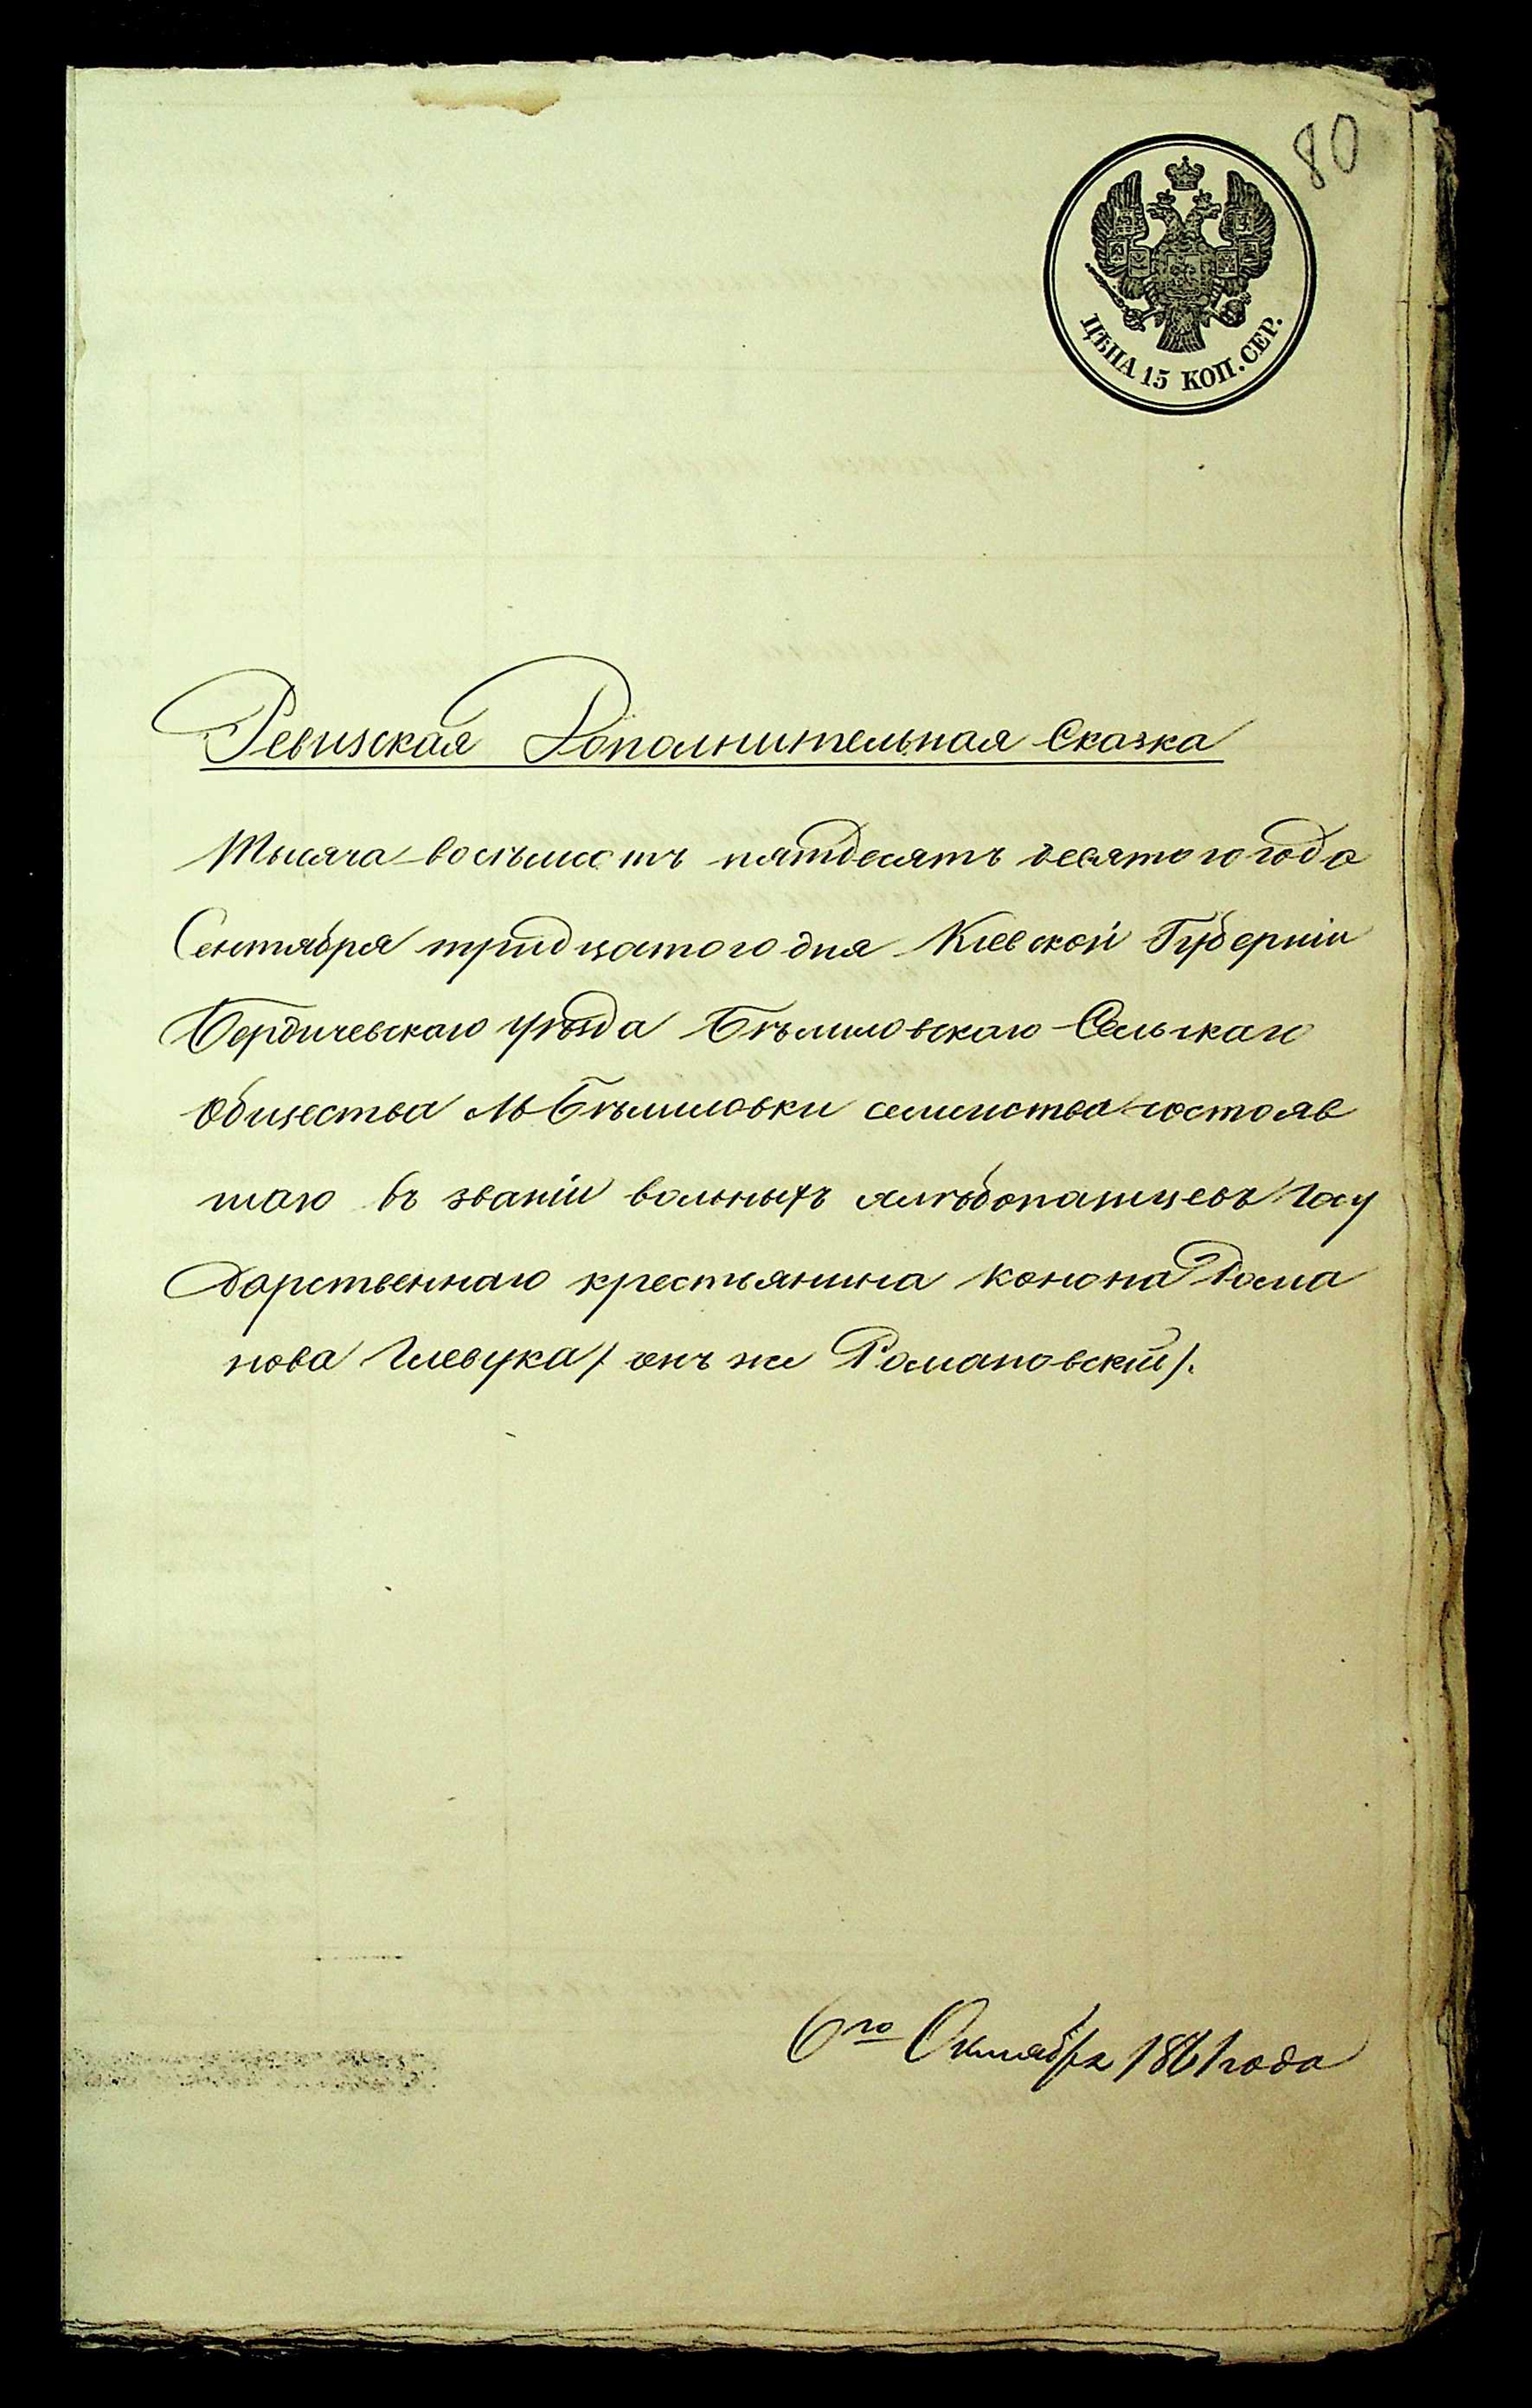 80
ЦѢНА 15 КОП. СЕР.
Ревизская Дополнительная Сказка
Тысяча восъмсотъ пятдесятъ девятого года
Сентября тридцатого дня Кіевской Губерніи
Бердичевскаго уѣзда Бѣлиловскаго Сельскаго
Общества М Бѣлиловки семейства состояв
шаго въ званіи вольныхъ хлѣбопашцевъ Госу
дарственнаго крестьянина Конона Рома
нова Глевука /: онъ же Романовскій /:
6го Октября 1861 года